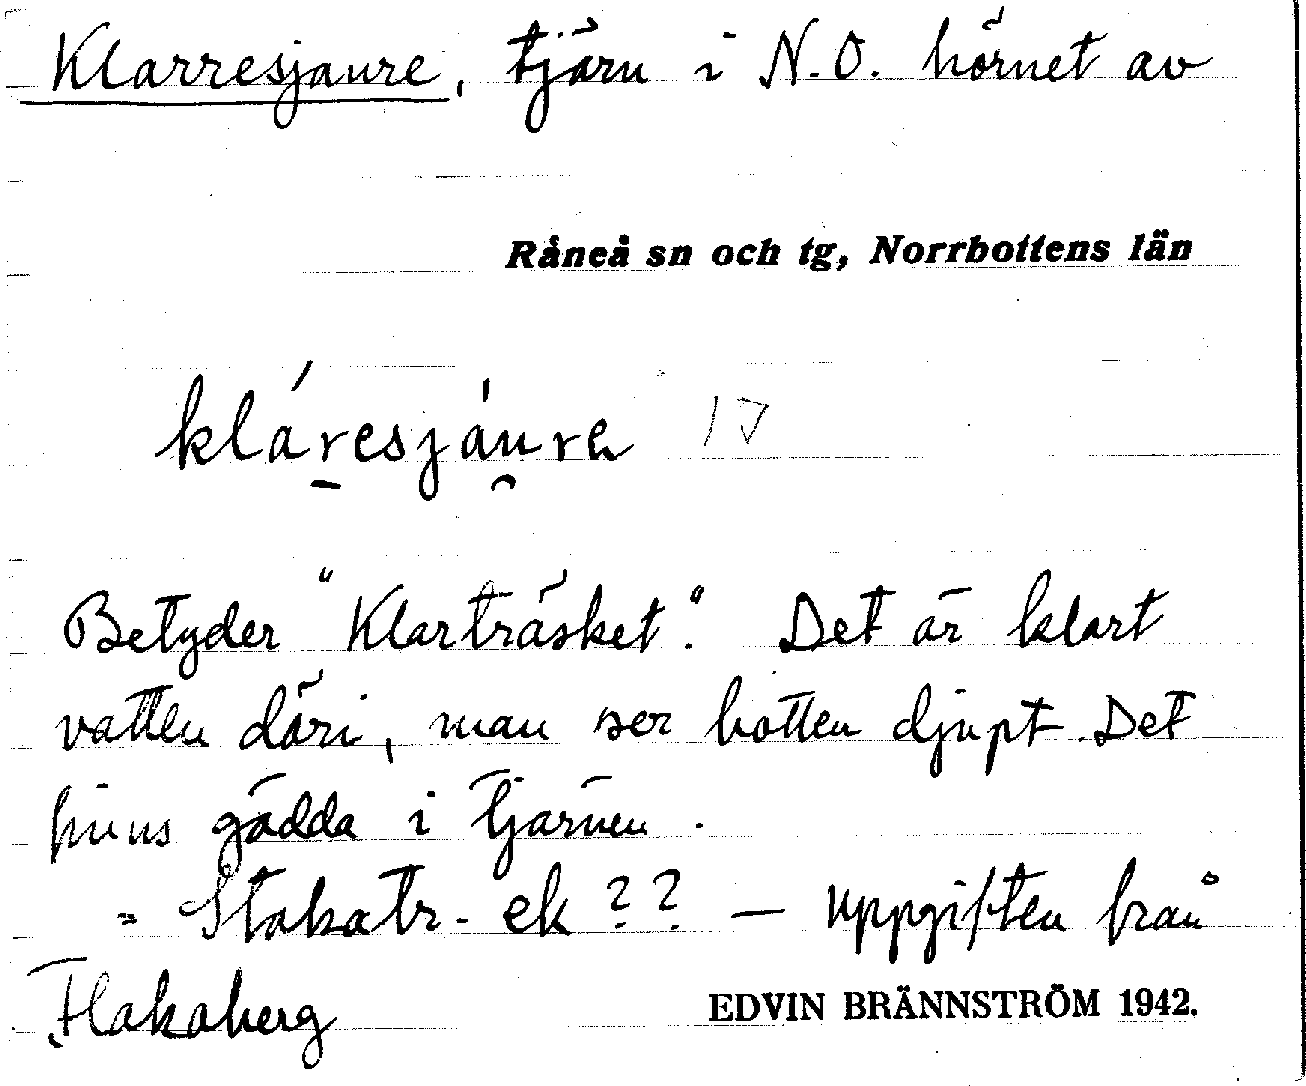 Klarresjaure, tjärn i N.O. hörnet av
Råneå sn och tg, Norrbottens län
kláresjáure
Betyder "Klarträsket". Det är klart
vatten däri, man ser botten djupt. Det
finns gädda i tjärnen.
= Stakatr. ek ?? — uppgiften från
Flakaberg
EDVIN BRÄNNSTRÖM 1942.